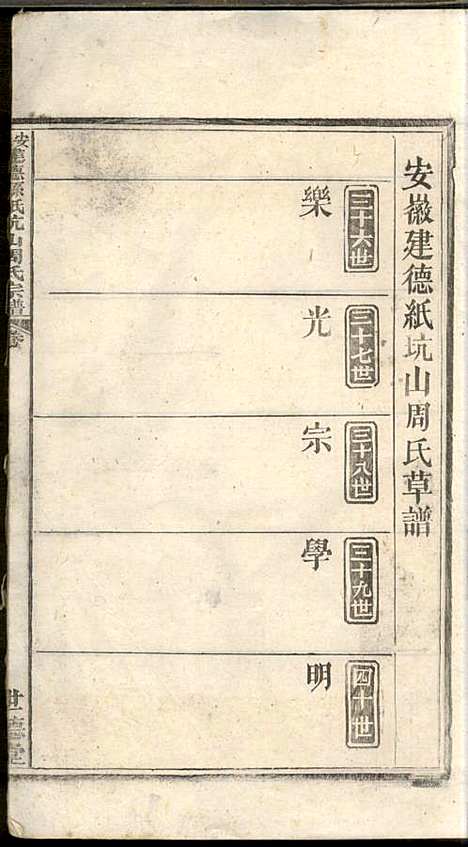 安徽建德紙坑山周氏草譜
三十六世
樂
三十七世
光
三十八世
宗
三十九世
學
四十世
明
安
德
氏坑山周氏宗譜
世德堂